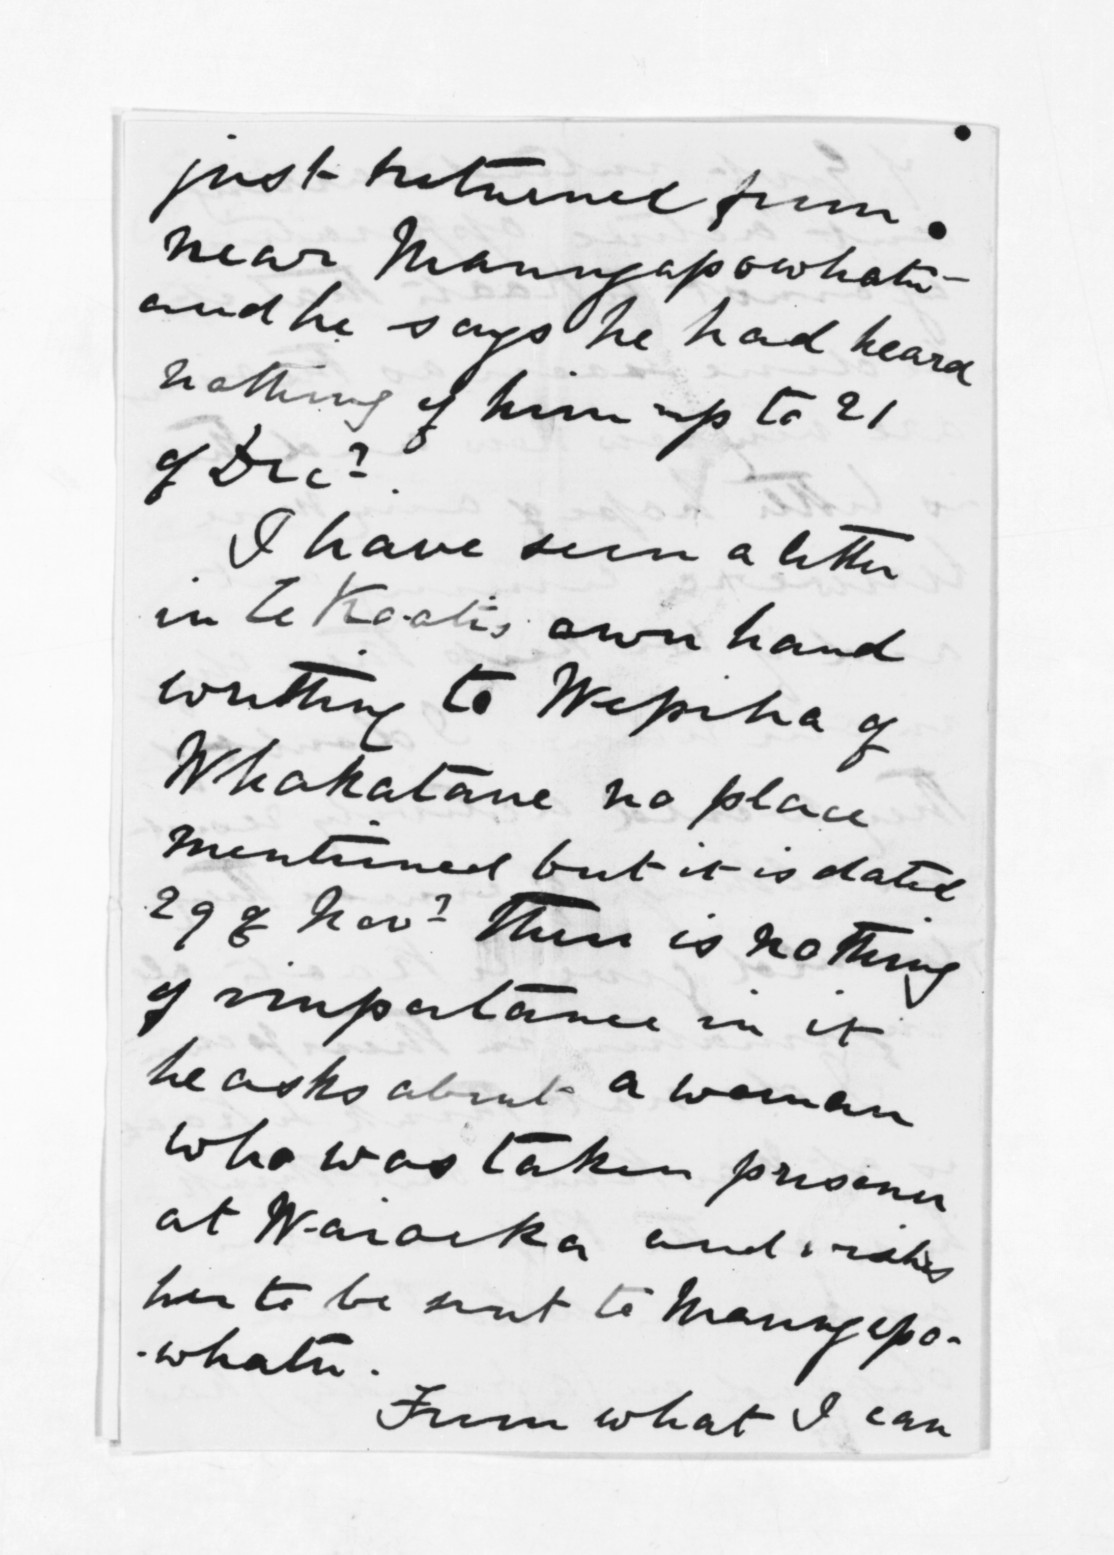 just returned from
near Maungapowhatu
and he says he had heard
nothing of him up to 21
of Decr.
I have seen a letter
in Te Kootis own hand
writting to Wepiha of
Whakatane no place
mentioned but it is dated
29 of Novr There is nothing
of importance in it
he asks about a woman
who was taken prisoner
at Waioeka and wishes
her to be sent to Maungapo-
-whatu.
From what I can